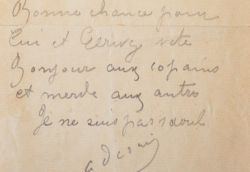 Bonne chance pour
lui et écrivez vite
Bonjour aux copains
et merde aux autres
Je ne suis pas saoul